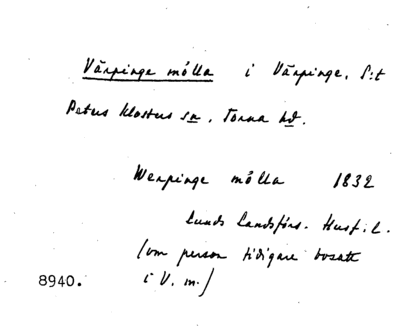 Värpinge mölla i Värpinge, S:t
Peters klosters sn, Torna hd.
Werpinge mölla 1832
Lunds Landsförs. Husf.l.
(om person tidigare bosatt
8940. i V. m.)